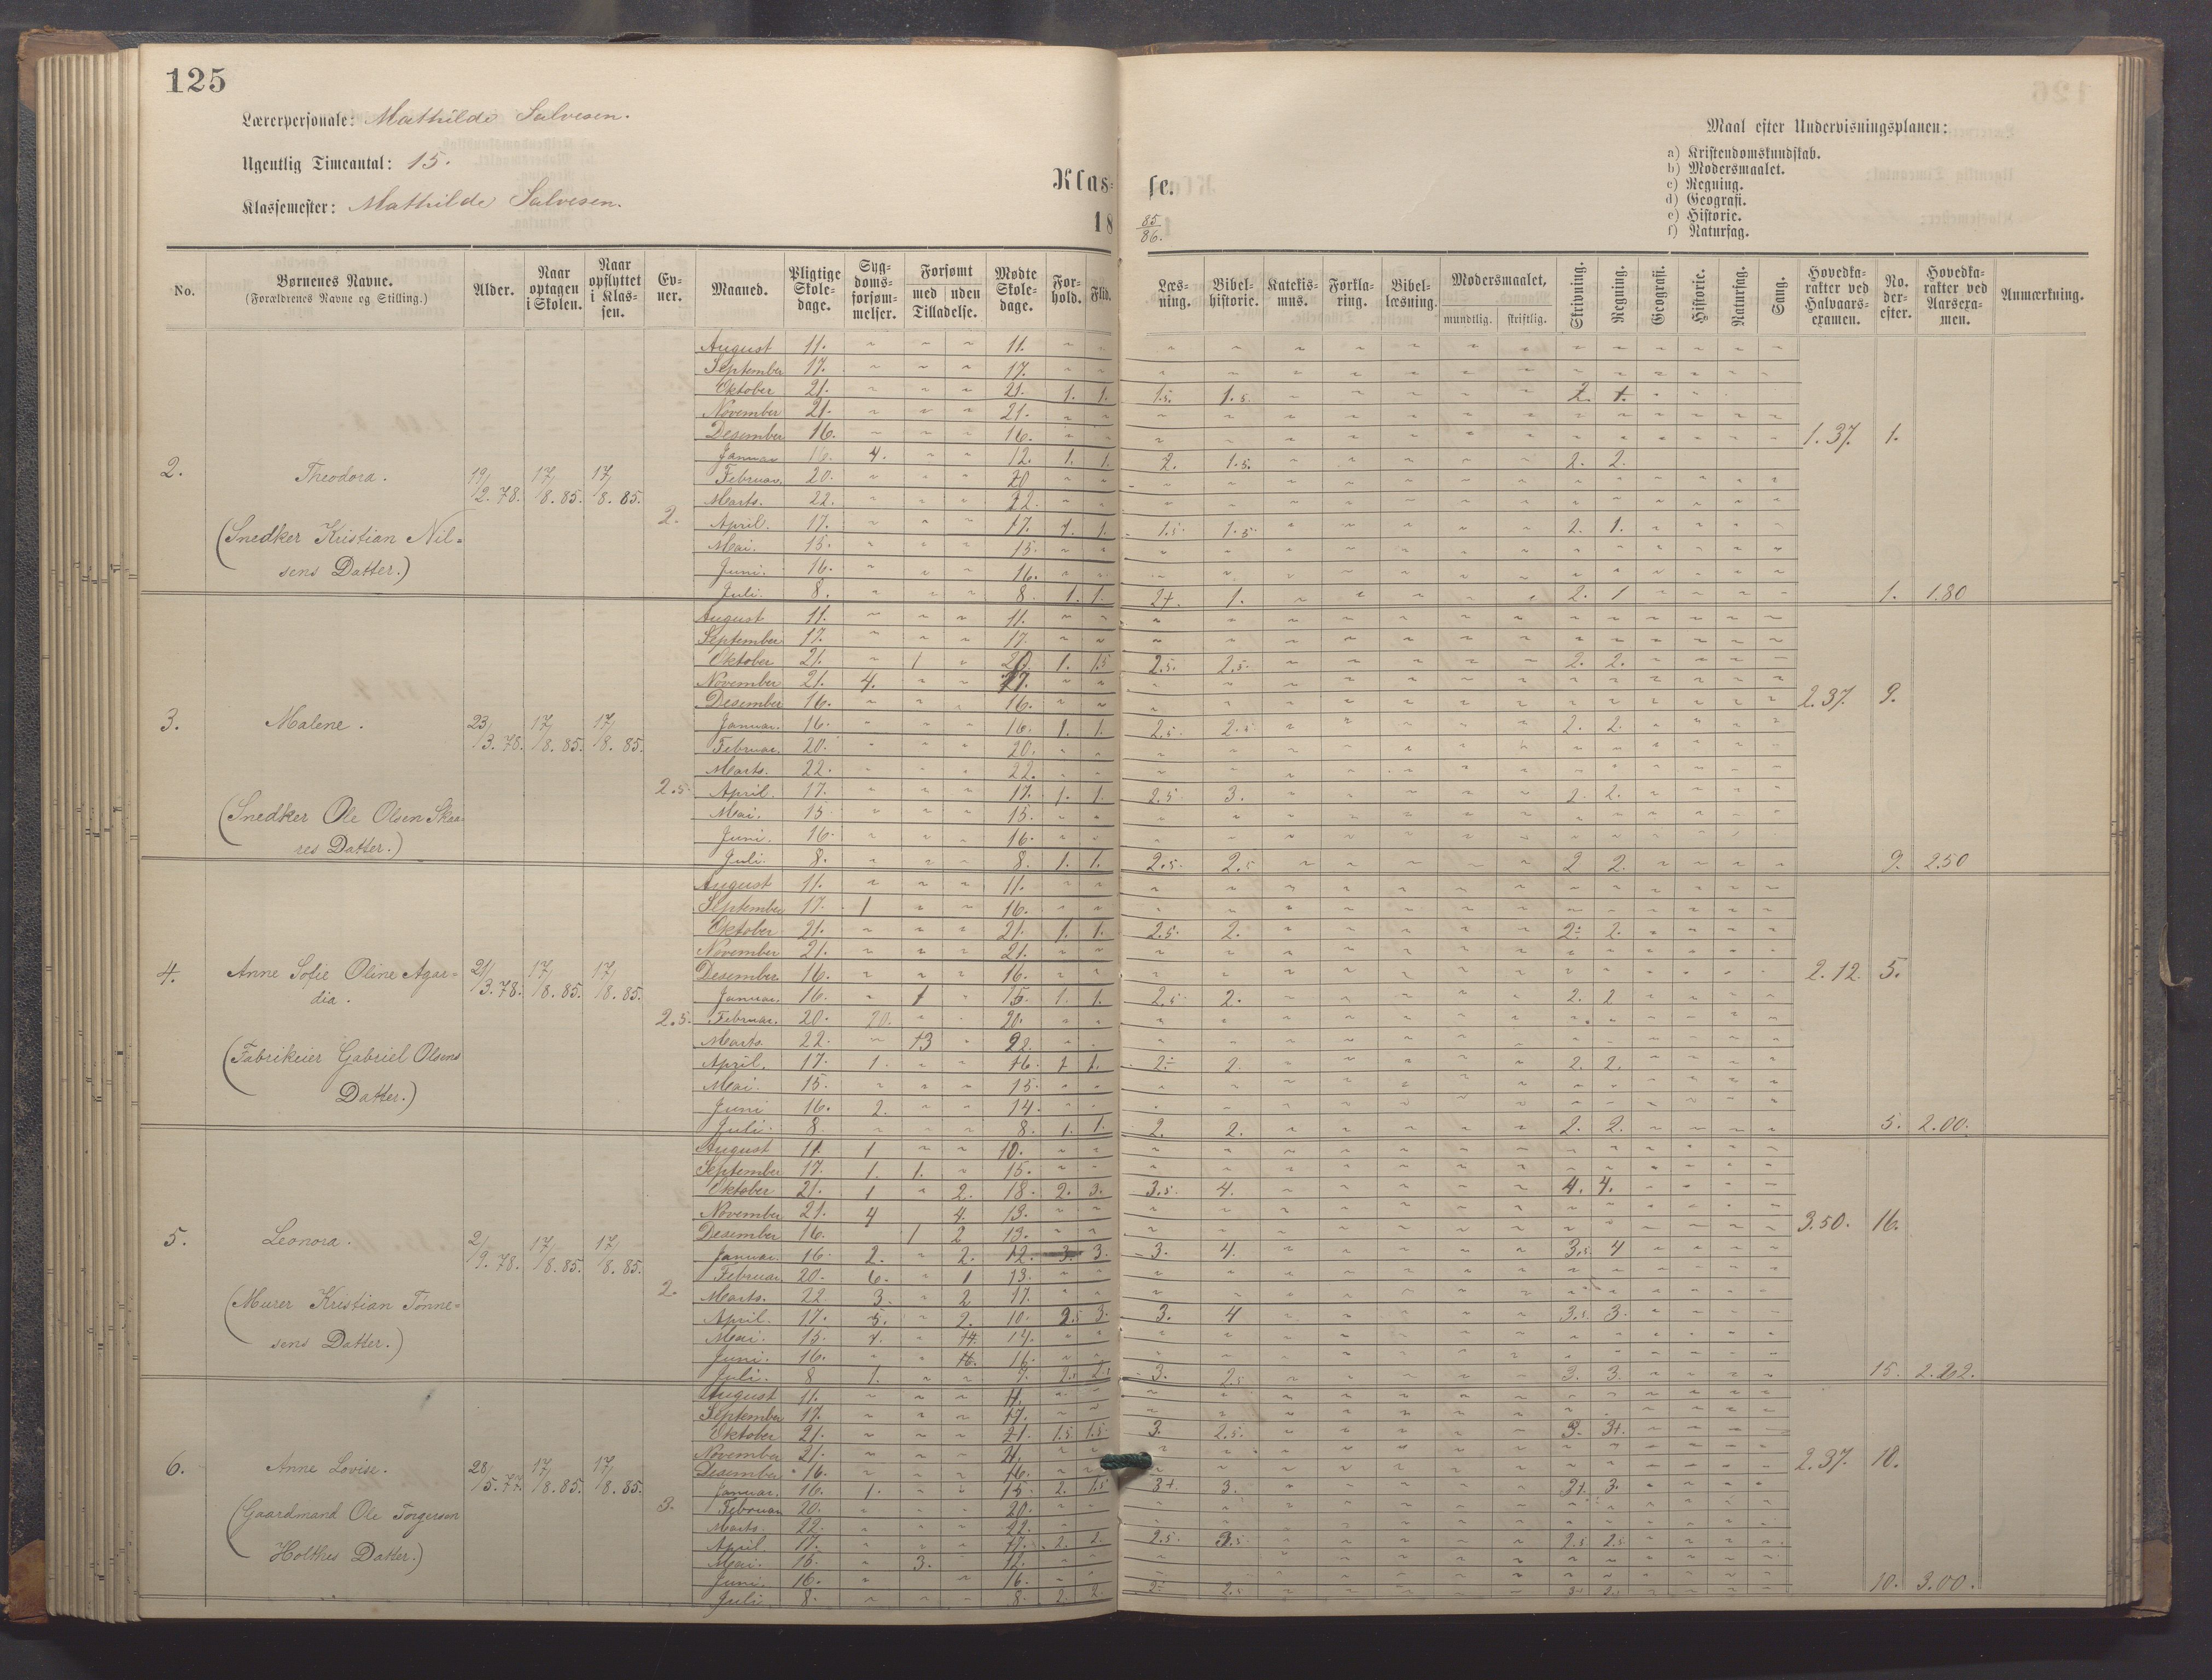 125
Lærerpersonale: Mathilde Salvesen.
Ugentlig Timeantal: 15.
Klassemester: Mathilde Salvesen.
Klasse.
18 85/86.
Maal efter Undervisningsplanen:
a) Kristendomskundskab.
b) Modersmaalet.
c) Regning.
d) Geografi.
e) Historie.
f) Naturfag.
No. Børnenes Navne. (Forældrenes Navne og Stilling.) Alder. Naar optagen i Skolen. Naar opflyttet i Klassen. Evner. Maaned. Pligtige Skoledage. Sygdomsforsømmelser. Forsømt med uden Tilladelse. Mødte Skoledage. Forhold. Flid. Læsning. Bibelhistorie. Katekismus. Forklaring. Bibellæsning. Modersmaalet, mundtlig. skriftlig. Skrivning. Regning. Geografi. Historie. Naturfag. Sang. Hovedkarakter ved Halvaarsexamen. No. derefter. Hovedkarakter ved Aarsexamen. Anmærkning.
2. Theodora. 19/2. 78. 17/8. 85. 17/8. 85. 2.
(Snedker Kristian Nilsens Datter.)
August 11. 11.
September 17. 17.
Oktober 21. 21. 1. 1. 1.5. 1.5. 2. 1.
November 21. 21.
Desember 16. 16. 1.37. 1.
Januar 16. 4. 12. 1. 1. 2. 1.5. 2. 2.
Februar. 20. 20
Marts. 22. 22.
April. 17. 17. 1. 1. 1.5. 1.5. 2. 1.
Mai. 15. 15.
Juni. 16. 16.
Juli. 8. 8. 1. 1. 2+. 1. 2. 1 1. 1.80
3. Malene. 23/3. 78. 17/8. 85. 17/8. 85. 2.5
(Snedker Ole Olsen Skaares Datter.)
August 11. 11.
September 17. 17.
Oktober 21. 1 20 1. 1.5 2.5. 2.5. 2. 2.
November 21. 4. 17.
Desember 16. 16. 2.37. 9.
Januar. 16. 16. 1. 1. 2.5. 2.5 2. 2.
Februar. 20. 20.
Marts. 22. 22.
April. 17. 17. 1. 1. 2.5 3. 2. 2.
Mai. 15 15.
Juni. 16. 16.
Juli. 8. 8. 1. 1. 2.5. 2.5 2 2. 9. 2.50
4. Anne Sofie Oline Agardia. 21/3. 78. 17/8. 85. 17/8. 85. 2.5.
(Fabrikeier Gabriel Olsens Datter.)
August 11. 11.
September 17. 1 16.
Oktober 21. 21. 1. 1. 2.5. 2. 2÷ 2.
November 21. 21.
Desember 16. 16. 2.12. 5.
Januar. 16. 1 15. 1. 1. 2.5. 2. 2. 2
Februar. 20. 20. 20.
Marts. 22. 13 22.
April. 17. 1. 16. 1. 1. 2÷ 2. 2. 2.
Mai. 15. 15.
Juni 16. 2. 14.
Juli. 8. 8. 1. 1. 2. 2. 2. 2. 5. 2.00.
5. Leonora. 2/9. 78. 17/8. 85. 17/8. 85. 2.
(Murer Kristian Tønnesens Datter.)
August 11. 1 10.
September 17. 1. 1. 15.
Oktober 21. 1 2. 18. 2. 3. 3.5. 4. 4. 4.
November 21. 4 4. 13.
Desember 16. 1 2 13. 3.50. 16.
Januar. 16. 2. 2. 12. 3. 3. 3. 4. 3.5 4
Februar. 20. 6. 1 13.
Marts. 22. 3. 2 17.
April. 17. 5. 2. 10. 2.5 3. 3. 4 3.5 3.
Mai. 15.
Juni. 16.
Juli. 8 1. 3. 2.5 3. 3. 15.
6. Anne Lovise. 28/5. 77. 17/8. 85. 17/8. 85. 3.
(Gaardmand Ole Torgersen Holthes Datter.)
August 11. 11.
September 17. 17.
Oktober 21. 21. 1.5 1.5. 3. 2.5. 3. 3+.
November 21. 21.
Desember 16. 16. 2.37. 10.
Januar. 16. 1. 15 2. 1.5 3+. 3. 2+. 3.
Februar 20. 20.
Marts. 22. 22.
April. 17. 17. 2. 2. 2.5. 3.5 2.5 2.5
Mai. 15. 3. 12.
Juni. 16. 16.
Juli 8. 8. 2. 2. 2.5 10. 3.00.